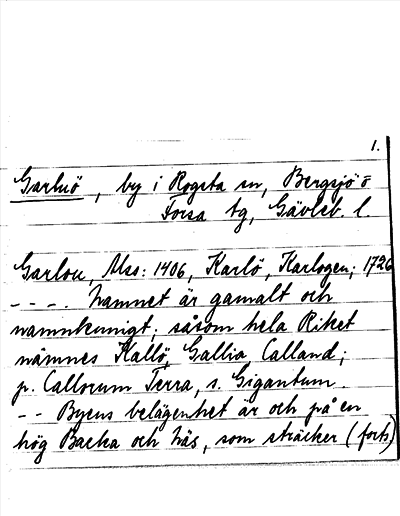 1.
Garluö, by i Rogsta sn, Bergsjö o
Forsa tg, Gävleb. l.
Garlou, Mss: 1406, Karlö, Karlogen; 1726
- - - . Namnet är gamalt och
namnkunnigt; såsom hela Riket
nämnes Kallö, Gallia, Calland;
p. Callorum Terra, s. Gigantum.
- - Byens belägenhet är och på en
hög Backa och Näs, som sträcker (forts)